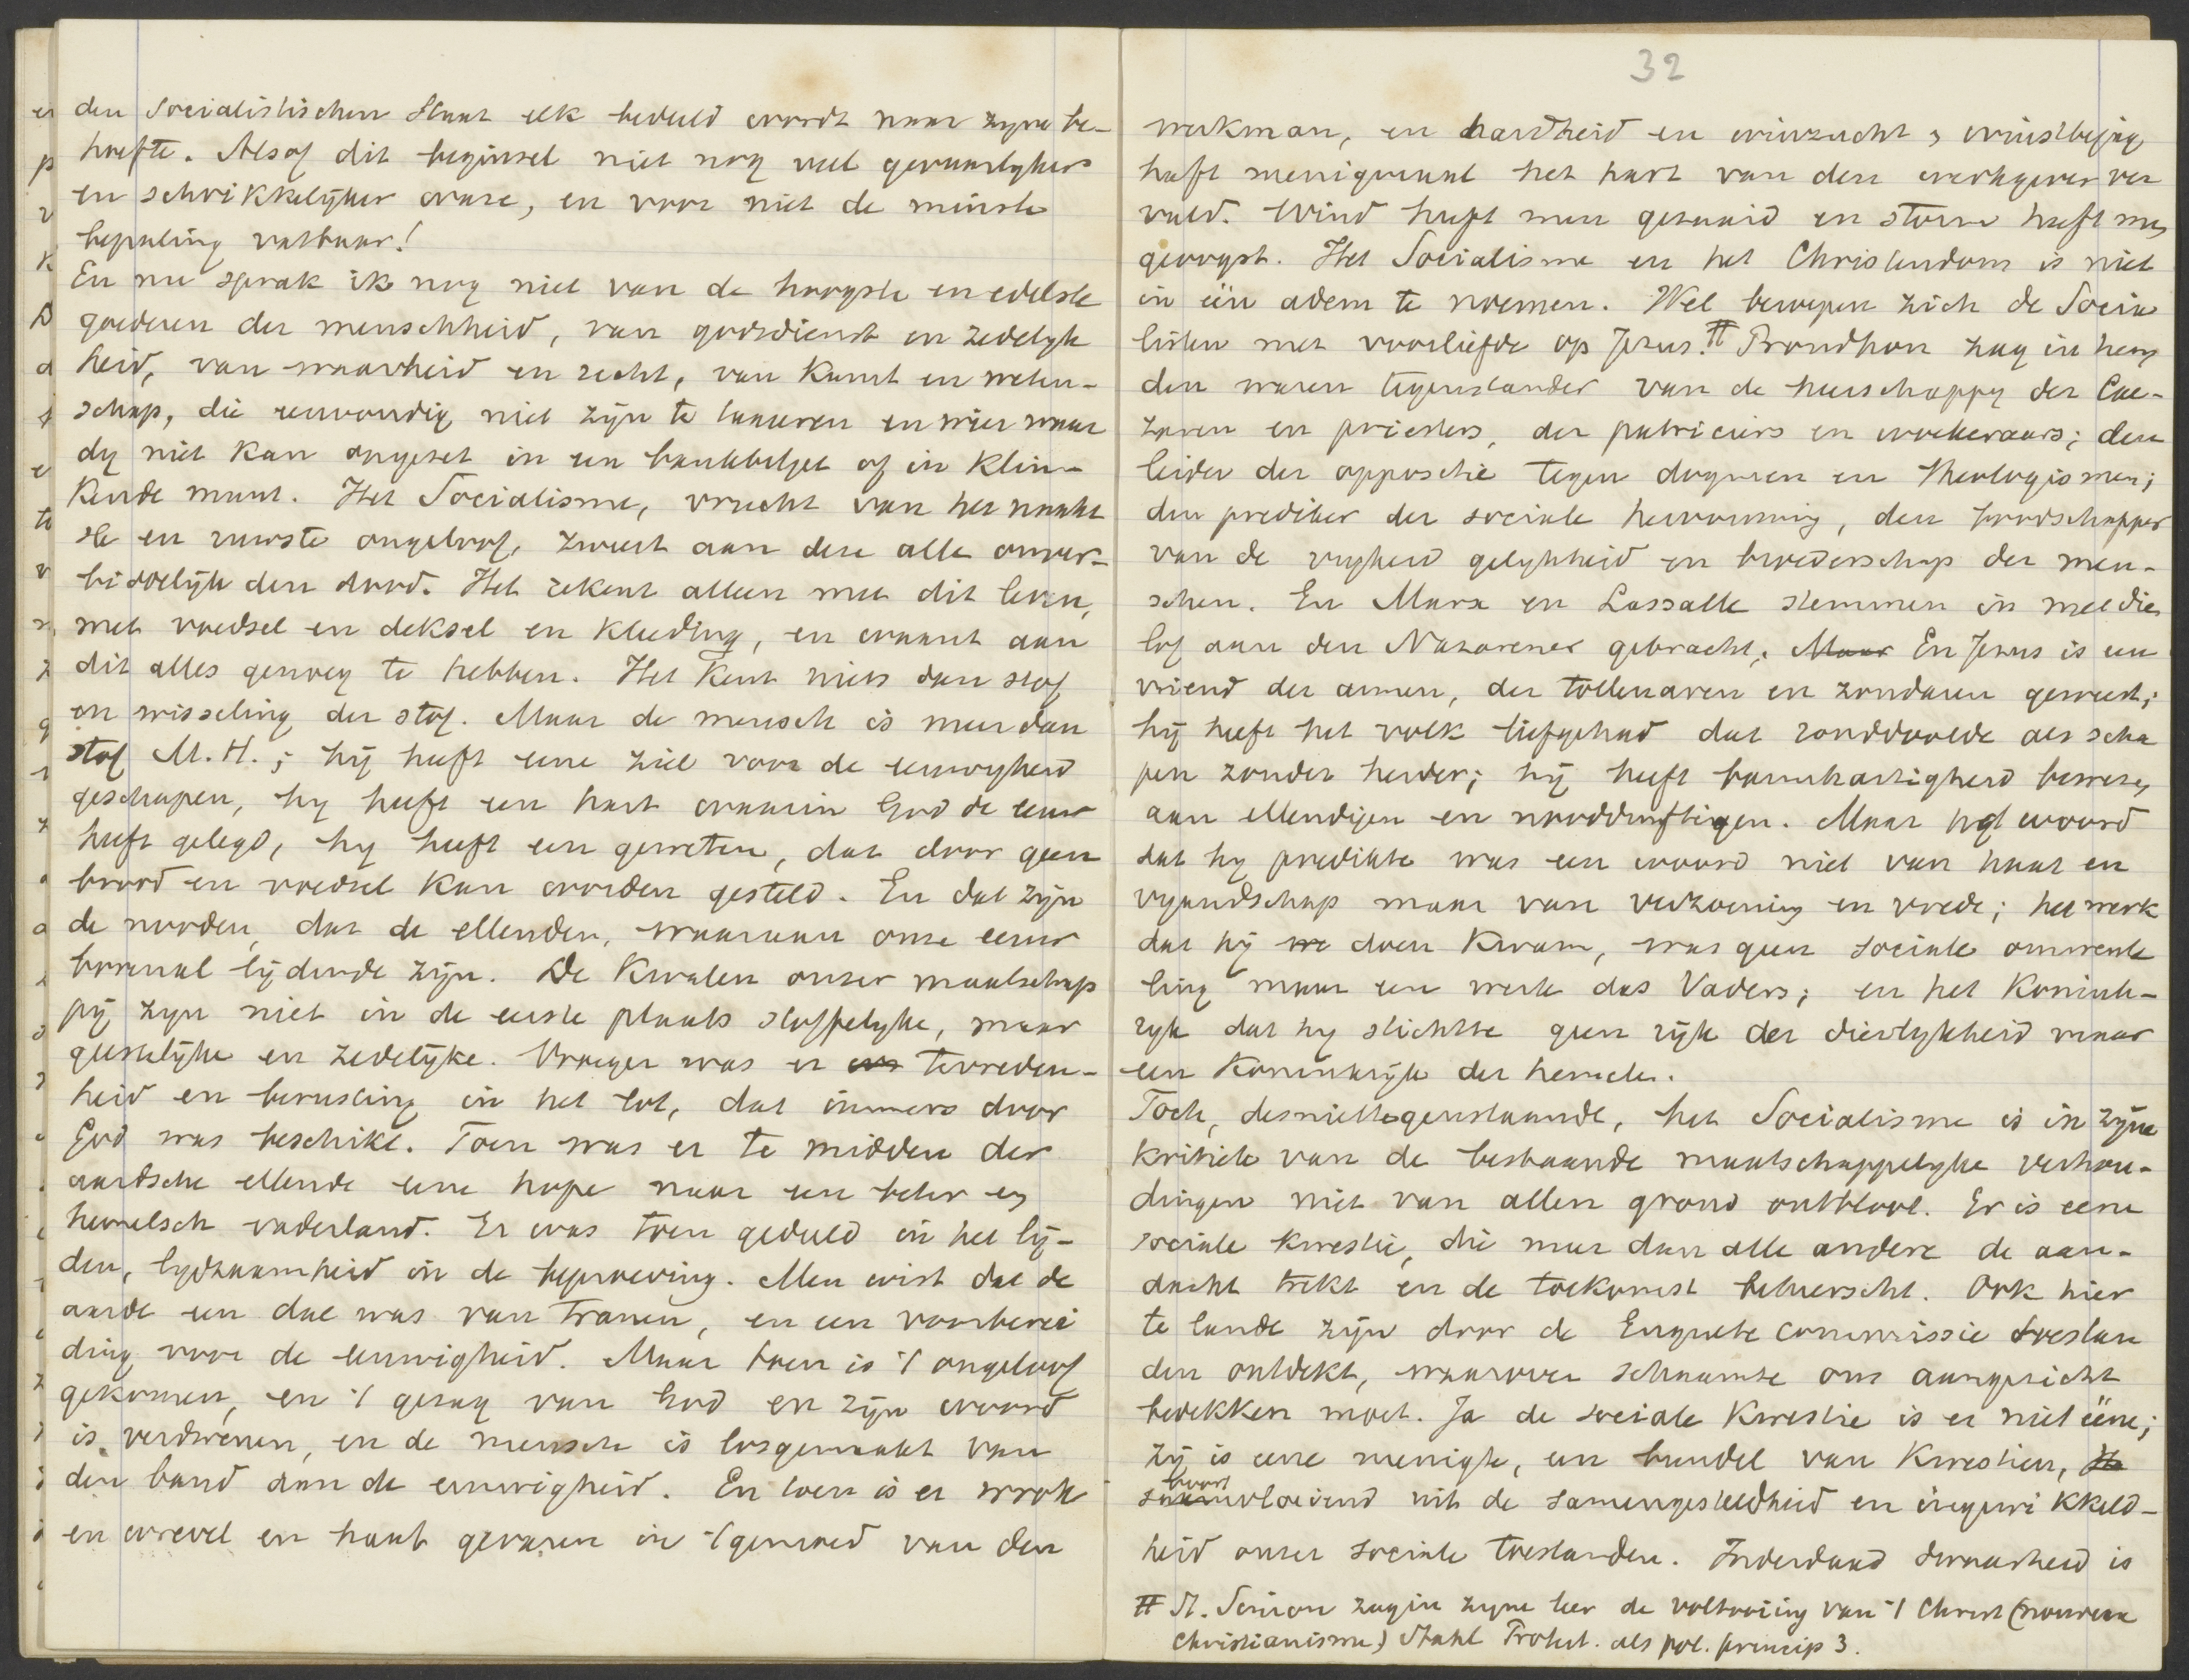 den Socialistischen Staat elk bedeeld wordt naar zyne be-
hoefte. Alsof dit beginsel niet nog veel gevaarlyker
en schrikkelijker ware, en voor niet de minste
bepaling vatbaar!
En nu sprak ik nog niet van de hoogste en edelste
goederen der menschheid, van godsdienst en zedelyk
heid, van waarheid en recht, van kunst en weten-
schap, die eenvoudig niet zijn te taxeeren en wier waar
dy niet kan omgezet in een bankbiljet of in klin-
kende munt. Het Socialisme, vrucht van het naakt
ste en ruwste ongeloof, zweert aan deze alle onver-
biddelijk den dood. Het rekent alleen met dit leven,
met voedsel en deksel en kleeding, en waant aan
dit alles genoeg te hebben. Het kent niets dan stof
en wisseling der stof. Maar de mensch is meer dan
stof M.H.; hij heeft eene ziel voor de eeuwigheid
geschapen, hy heeft een hart waarin God de eeuw
heeft gelegd, hy heeft een geweten, dat door geen
brood en voedsel kan worden gestild. En dat zijn
de nooden, dat de ellenden, waaraan onze eeuw
bovenal lijdende zijn. De kwalen onzer maatschap
pij zyn niet in de eerste plaats stoffelyke, maar
geestelijke en zedelijke. Vroeger was er tevreden-
heid en berusting in het lot, dat immers door
God was beschikt. Toen was er te midden der
aardsche ellende eene hope naar een beter en
hemelsch vaderland. Er was toen geduld in het lij-
den, lydzaamheid in de beproeving. Men wist dat de
aarde een dal was van tranen, en een voorberei
ding voor de eeuwigheid. Maar toen is 't ongeloof
gekomen, en 't gezag van God en zijn woord
is verdwenen, en de mensch is losgemaakt van
den band aan de eeuwigheid. En toen is er wrok
en wrevel en haat gevaren in 't gemoed van den
32
werkman, en hardheid en winzucht & winstbejag
heeft menigmaal het hart van den werkgever ver
vuld. Wind heeft men gezaaid en storm heeft men
geoogst. Het Socialisme en het Christendom is niet
in één adem te noemen. Wel beroepen zich de Socia
listen met voorliefde op Jezus. # Proudhon zag in hem
den waren tegenstander van de heerschappy der Cae-
zaren en priesters, der patriciers en woekeraars; den
leider der oppositie tegen dogmen en theologismen;
den prediker der sociale hervorming, den
van de vryheid gelykheid en broederschap der men-
schen. En Marx en Lassalle stemmen in met dien
lof aan den Nazarener gebracht. Maar En Jezus is een
vriend der armen, der tollenaren en zondaren geweest;
hij heeft het volk liefgehad dat ronddoolde als scha
pen zonder herder; hij heeft barmhartigheid bewezen
aan ellendigen en nooddruftigen. Maar het woord
dat hy predikte was een woord niet van haat en
vyandschap maar van verzoening en vrede; het werk
dat hij doen kwam, was geen sociale omwente
ling maar een werk des Vaders; en het Konink-
ryk dat hy stichtte geen rijk der dierlykheid maar
een Koninkrijk der hemelen.
Toch, desniettegenstaande, het Socialisme is in zijne
kritiek van de bestaande maatschappelyke verhou-
dingen niet van allen grond ontbloot. Er is eene
sociale kwestie, die meer dan alle andere de aan-
dacht trekt en de toekomst beheerscht. Ook hier
te lande zijn door de Enquete commissie toestan
den ontdekt, waarover schaamte ons aangezicht
bedekken moet. Ja de sociale kwestie is er niet ééne;
zij is eene menigte, een bundel van kwestien,
voortvloeiend uit de samengesteldheid en ingewikkeld-
heid onzer sociale toestanden. Inderdaad is
# St. Simon zag in zyne leer de voltooiing van 't Christ (nouveau
christianisme) Stahl Protest. als pol. princip 3.